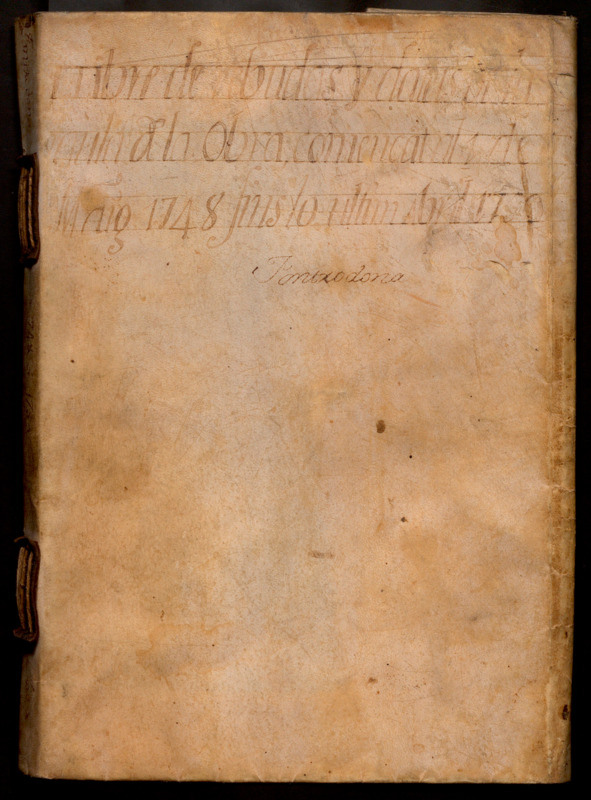 Llibre de rebudas y dates de la
de la Obra, comensat al p.r de
Maig 1748 fins lo ultim Abril 1750
Fontxodona